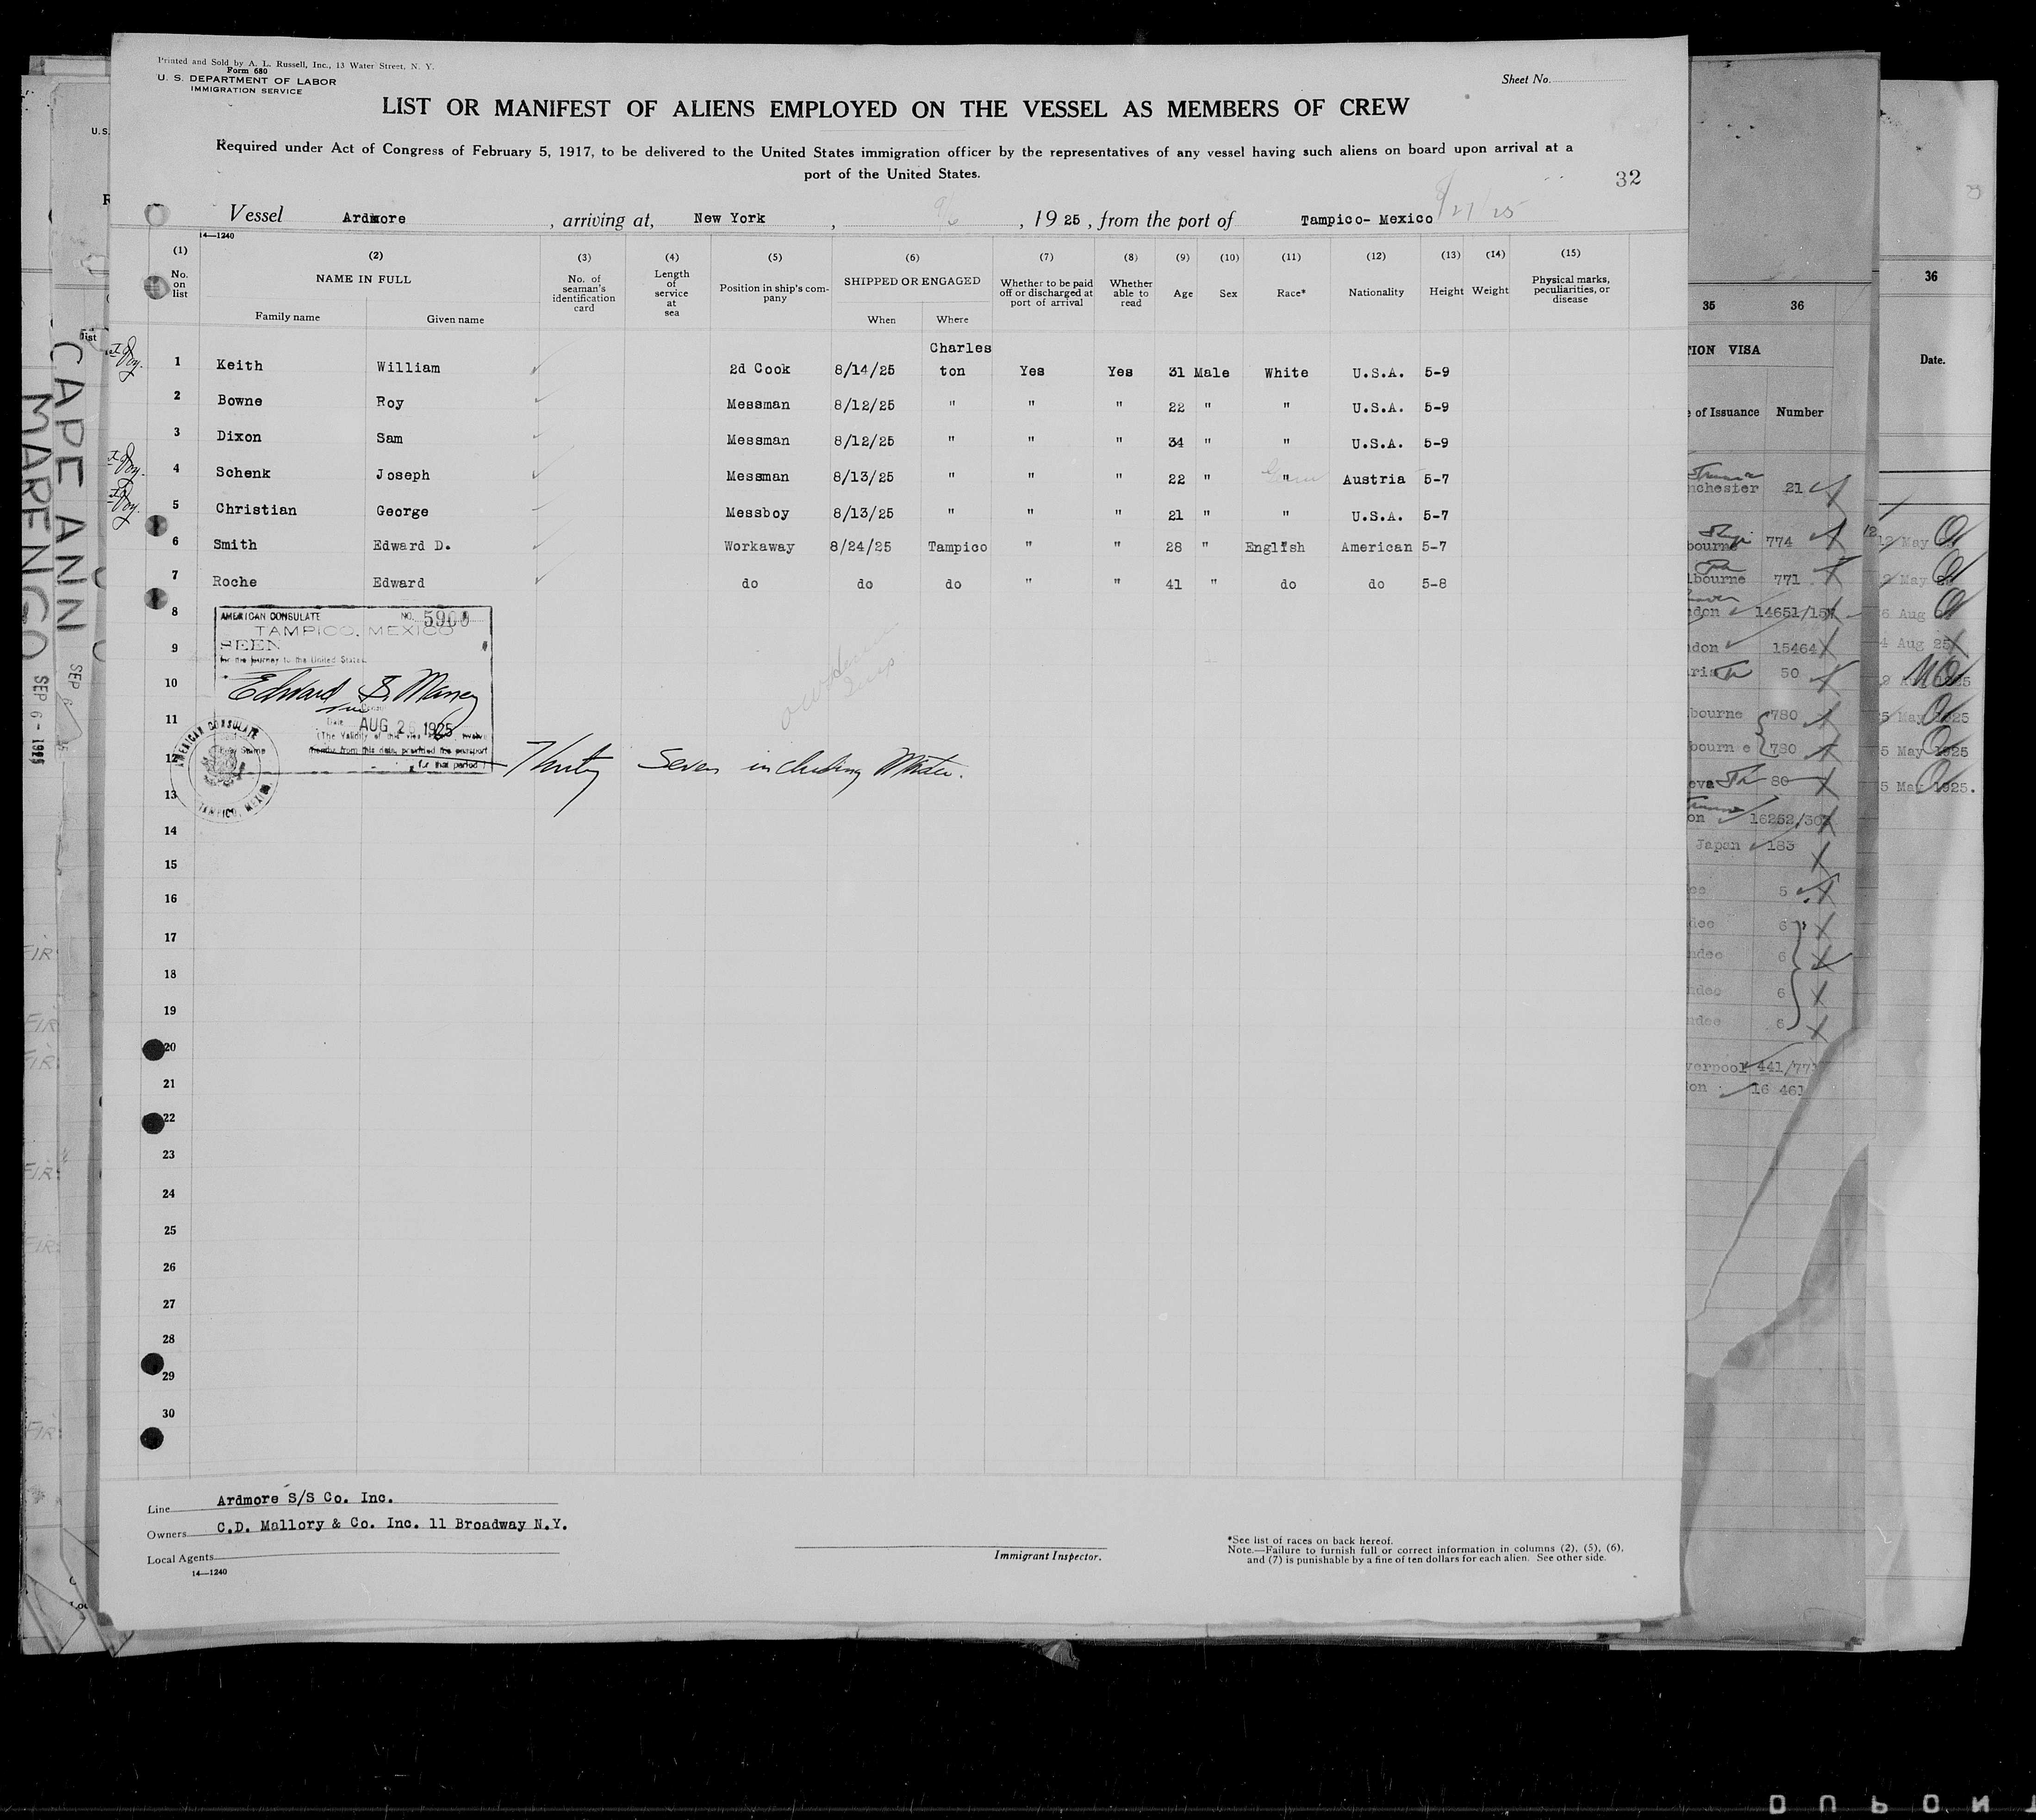 Printed and Sold by A. L. Russell, Inc., 13 Water Street, N. Y.
Form 680
U. S. DEPARTMENT OF LABOR
IMMIGRATION SERVICE
Sheet No.
LIST OR MANIFEST OF ALIENS EMPLOYED ON THE VESSEL AS MEMBERS OF CREW
Required under Act of Congress of February 5, 1917, to be delivered to the United States immigration officer by the representatives of any vessel having such aliens on board upon arrival at a
port of the United States.
32
Vessel Ardmore, arriving at, New York, 9/6, 1925, from the port of Tampico- Mexico 8/27/25
14—1240
(1) (2) (3) (4) (5) (6) (7) (8) (9) (10) (11) (12) (13) (14) (15)
No. on list NAME IN FULL Family name Given name No. of seaman's identification card Length of service at sea Position in ship's company SHIPPED OR ENGAGED When Where Whether to be paid off or discharged at port of arrival Whether able to read Age Sex Race* Nationality Height Weight Physical marks, peculiarities, or disease
1 Keith William 2d Cook 8/14/25 Charles ton Yes Yes 31 Male White U.S.A. 5-9
2 Bowne Roy Messman 8/12/25 " " " 22 " " U.S.A. 5-9
3 Dixon Sam Messman 8/12/25 " " " 34 " " U.S.A. 5-9
4 Schenk Joseph Messman 8/13/25 " " " 22 " " Austria 5-7
5 Christian George Messboy 8/13/25 " " " 21 " " U.S.A. 5-7
6 Smith Edward D. Workaway 8/24/25 Tampico " " 28 " English American 5-7
7 Roche Edward do do do " " 41 " do do 5-8
8
9
10
11
12
13
14
15
16
17
18
19
20
21
22
23
24
25
26
27
28
29
30
AMERICAN CONSULATE NO. 5900
TAMPICO, MEXICO
SEEN
for the journey to the United States
Edward S. Maney
Date AUG 26 1925
(The Validity of this visa
months from this date, provided the passport
for that period)
AMERICAN CONSULATE
TAMPICO, MEXICO
Thirty Seven including Master.
Line Ardmore S/S Co. Inc.
Owners C.D. Mallory & Co. Inc. 11 Broadway N.Y.
Local Agents
14—1240
Immigrant Inspector.
*See list of races on back hereof.
Note.—Failure to furnish full or correct information in columns (2), (5), (6),
and (7) is punishable by a fine of ten dollars for each alien. See other side.
CAPE ANN
MARENGO
SEP 6 - 1925
SEP 6
35 36
TION VISA
of Issuance Number
nchester 21
bourne 774
lbourne 771
don 14651/157
don 15464
50
bourne 780
bourn e 780
80
on 16252/30
Japan 183
5
dee 6
ndee 6
ndee 6
ndee 6
verpool 441/77
on 16 461
36
Date.
12 May
May
6 Aug
4 Aug 25
5 May 1925
5 May 1925
5 May 1925.